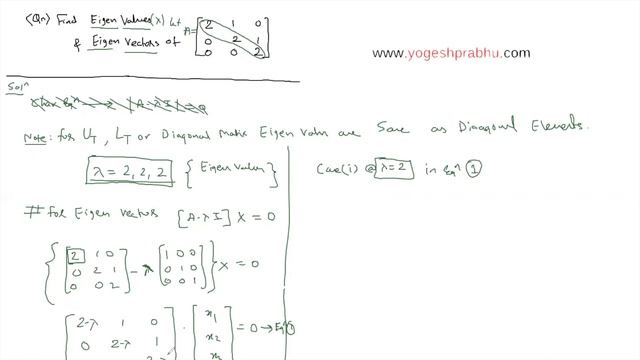 (Qn) Find Eigen Values (λ) Let
& Eigen Vectors of
A = [2 1 0
0 2 1
0 0 2]
www.yogeshprabhu.com
Solⁿ
Char Eqⁿ → |A - λI| = 0
Note: for U_T, L_T or Diagonal Matrix Eigen Values are Same as Diagonal Elements.
λ = 2, 2, 2 {Eigen Values}
# for Eigen Vectors [A-λI] X = 0
{[2 1 0
0 2 1
0 0 2] - λ [1 0 0
0 1 0
0 0 1]} X = 0
[2-λ 1 0
0 2-λ 1
2-λ] · [x₁
x₂
x₃] = 0 → Eqⁿ ①
Case(i) @ λ=2 in Eqⁿ ①